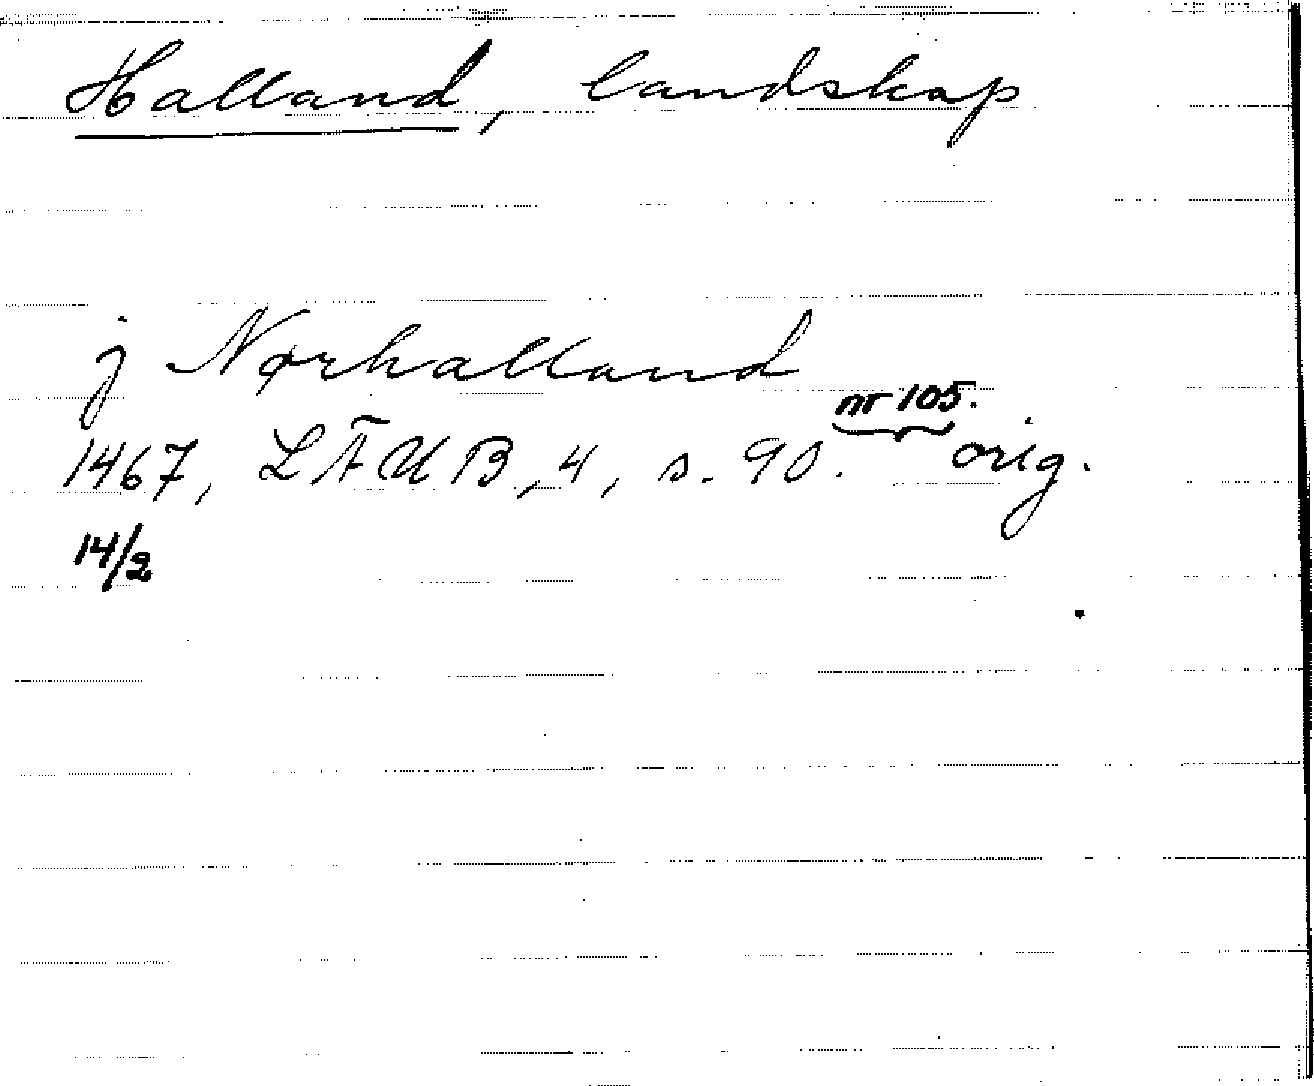 Halland, landskap
j Nørhalland
1467, LÄUB, 4, s. 90. nr 105. orig.
14/2